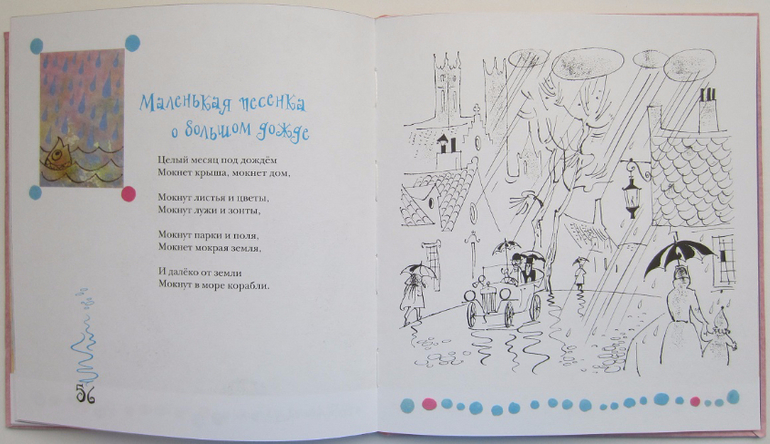 Маленькая песенка
о большом дожде
Целый месяц под дождём
Мокнет крыша, мокнет дом,
Мокнут листья и цветы,
Мокнут лужи и зонты,
Мокнут парки и поля,
Мокнет мокрая земля,
И далёко от земли
Мокнут в море корабли.
56